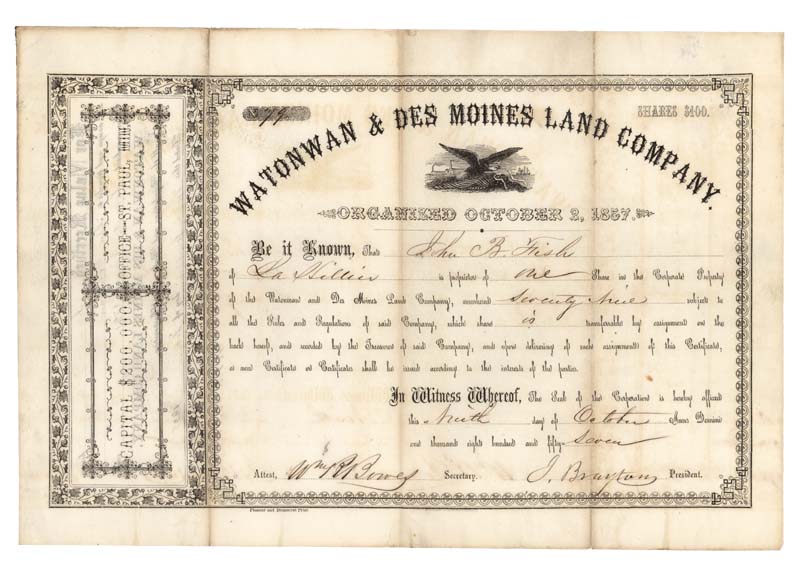 79
SHARES $100.
WATONWAN & DES MOINES LAND COMPANY.
ORGANIZED OCTOBER 2, 1857.
Be it Known, That John B. Fish
of La Hillier is proprietor of one Share in the Corporate Property
of the Watonwan and Des Moines Land Company, numbered Seventy Nine subject to
all the Rules and Regulations of said Company, which share is transferable by assignment on the
back hereof, and recorded by the Treasurer of said Company, and upon delivery of such assignment of this Certificate,
a new Certificate or Certificates shall be issued according to the interests of the parties.
In Witness Whereof, The Seal of the Corporation is hereby affixed
this Ninth day of October Anno Domini
one thousand eight hundred and fifty-seven
Attest, Wm R Bowes Secretary. J. Brayton President.
Pioneer and Democrat Print.
CAPITAL $200,000.—OFFICE—ST. PAUL, MIN.